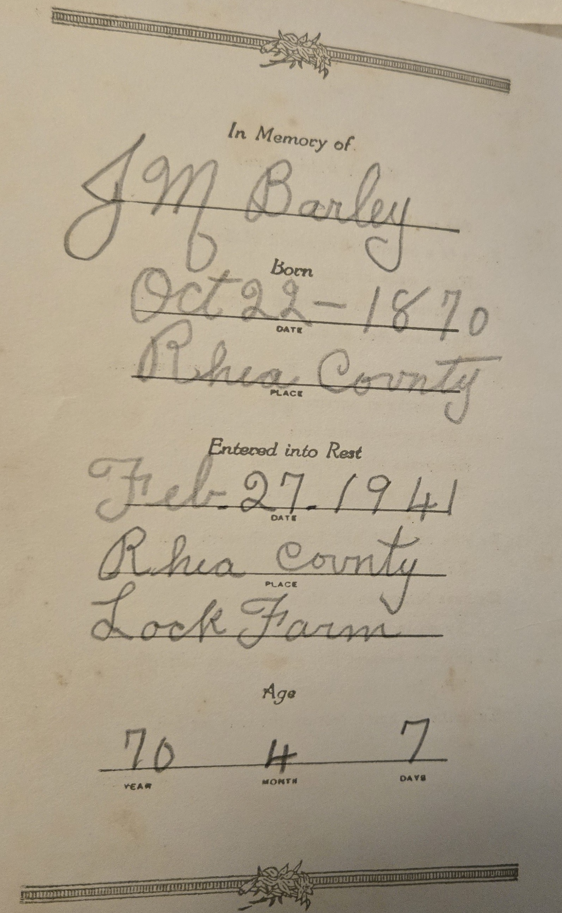 In Memory of
J M Barley
Born
Oct 22 - 1870
DATE
Rhea County
PLACE
Entered into Rest
Feb. 27. 1941
DATE
Rhea County
PLACE
Lock Farm
Age
70 4 7
YEAR MONTH DAYS